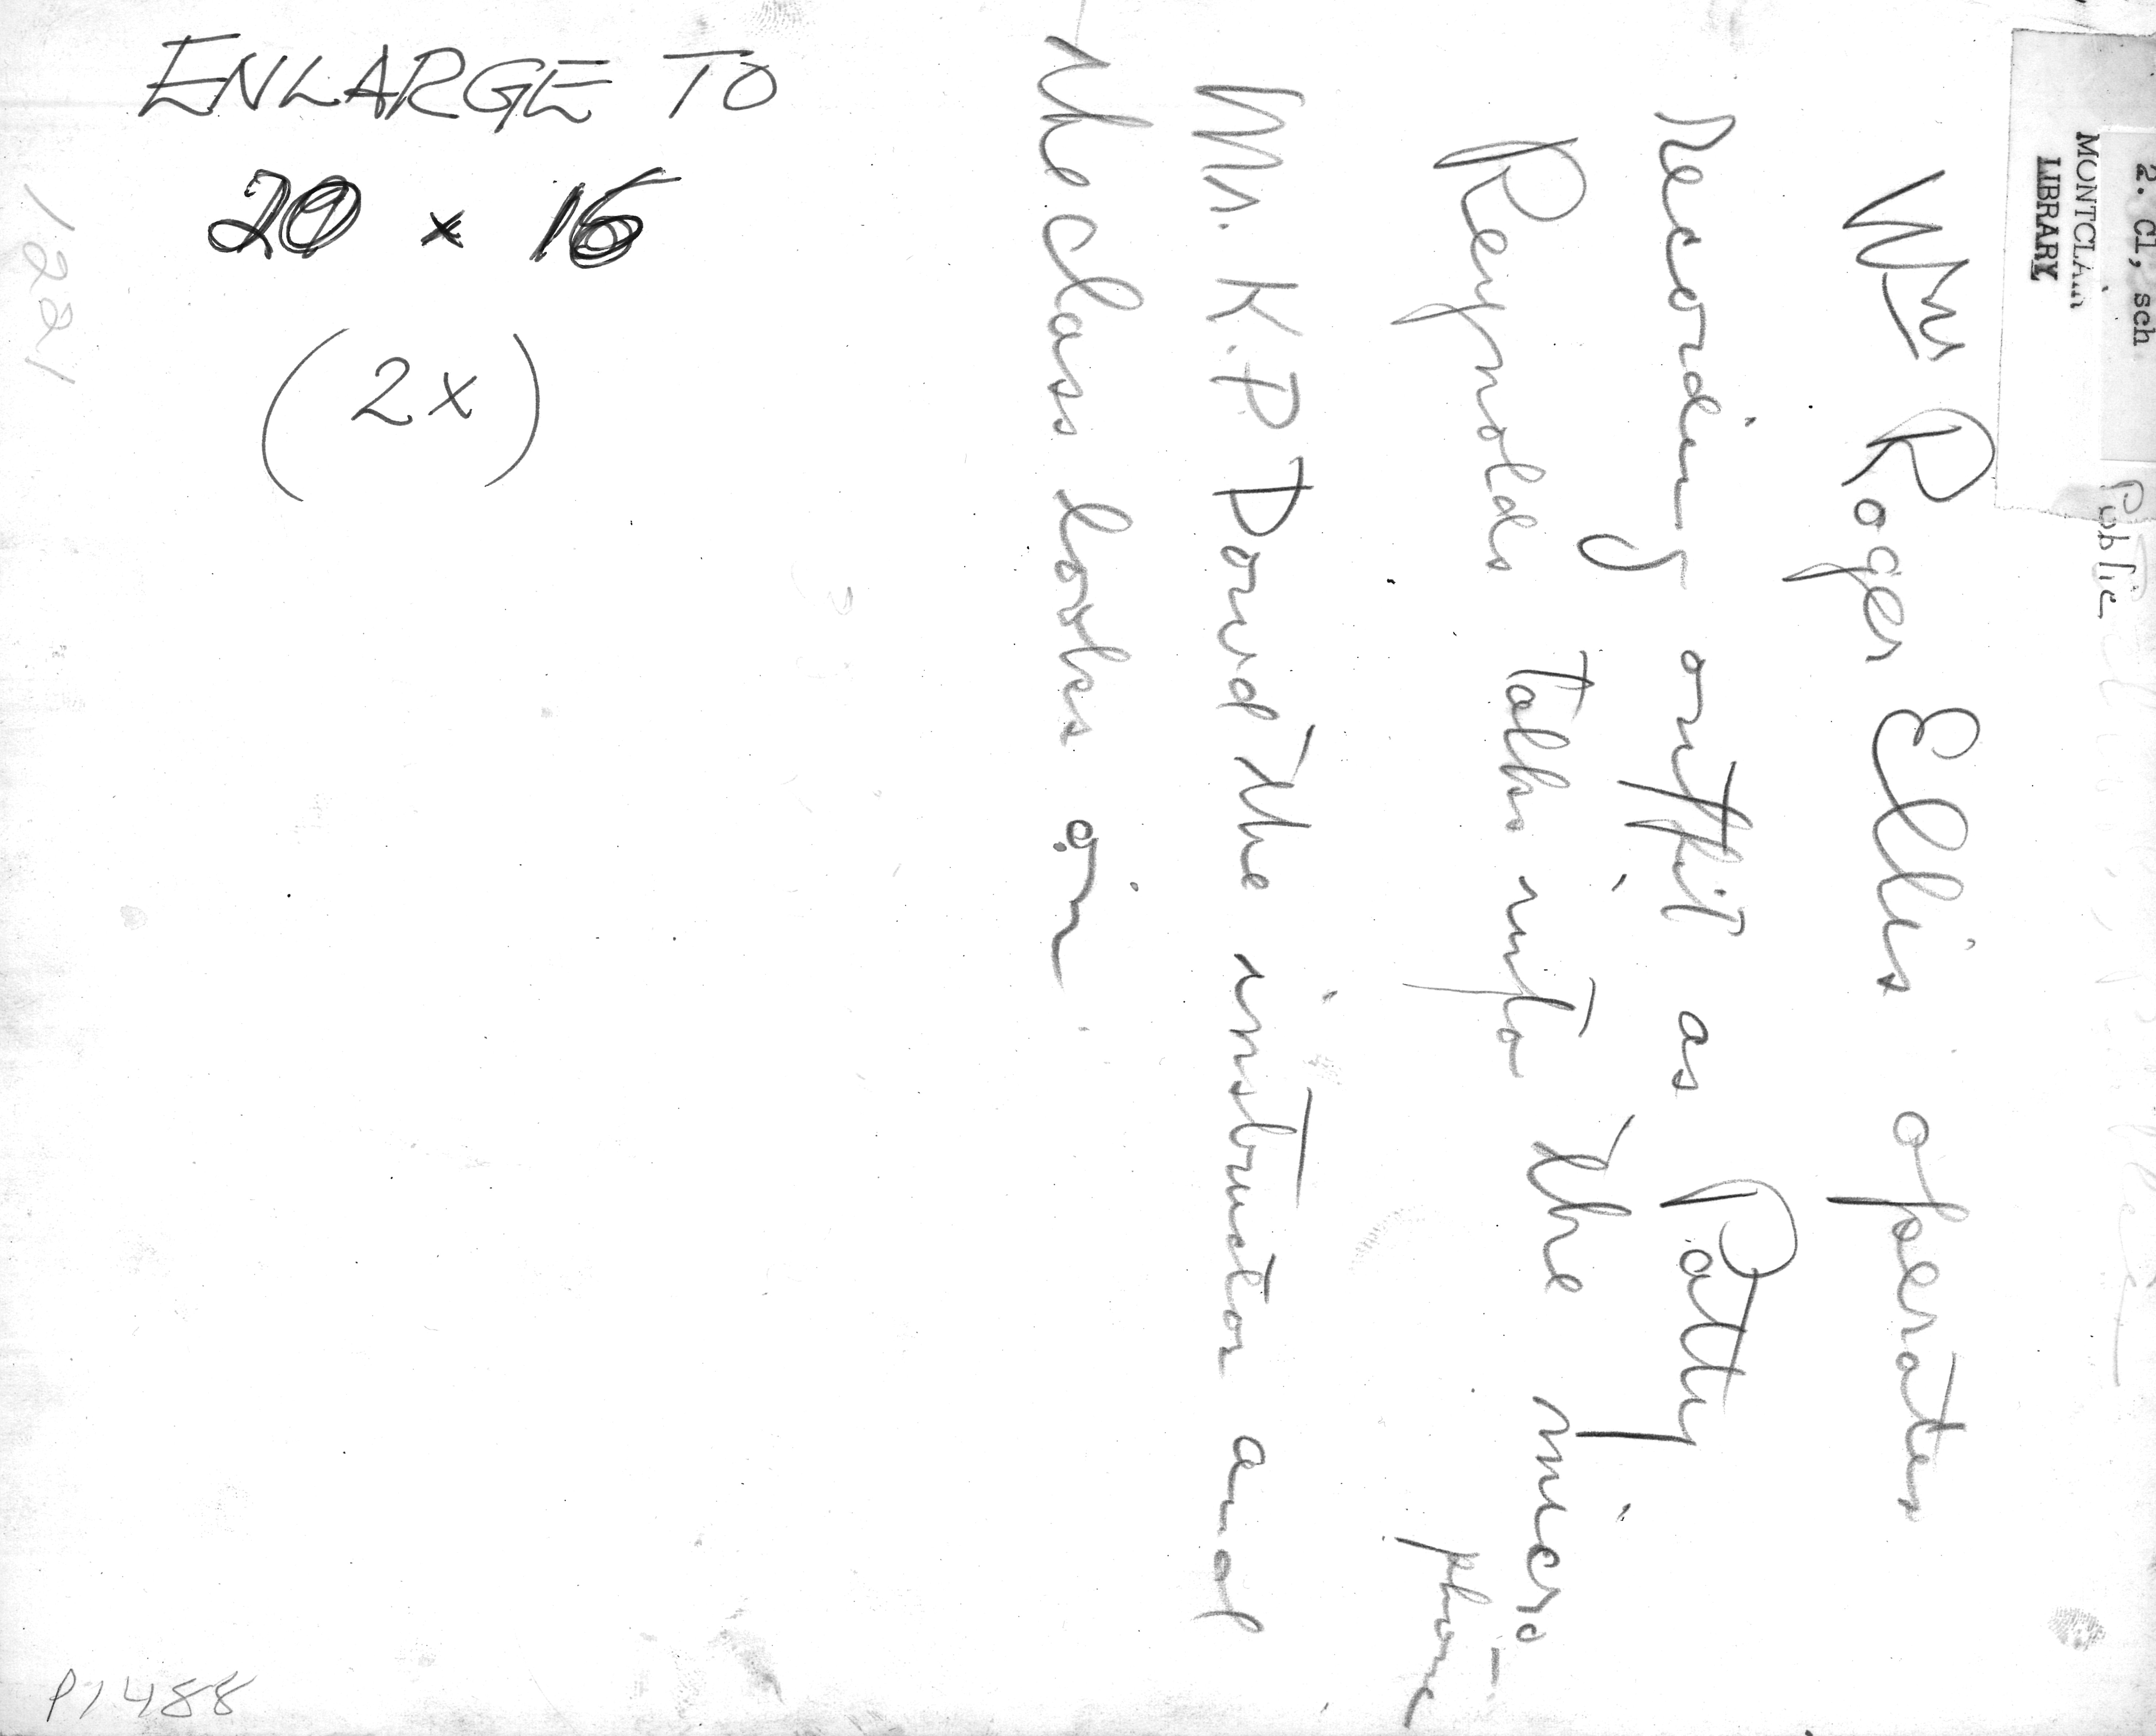 ENLARGE TO
20 x 16
(2x)
1221
P1488
2. Cl, sch
MONTCLAIR
LIBRARY
Public
Wm Roger Ellis operates
Recording outfit as Patty
Reynolds talks into the micro-
phone
Mr. K.P Dowd the instructor and
the class looks on.